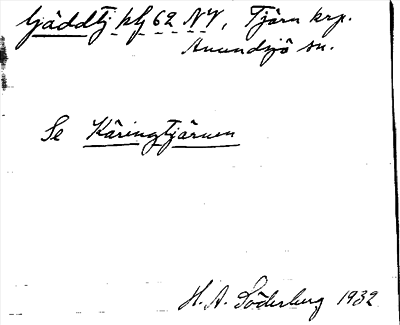 Gäddtj kbl 62 NV, Tjärn krp.
Anundsjö sn.
Se Käringtjärnen
H. A. Söderberg 1932